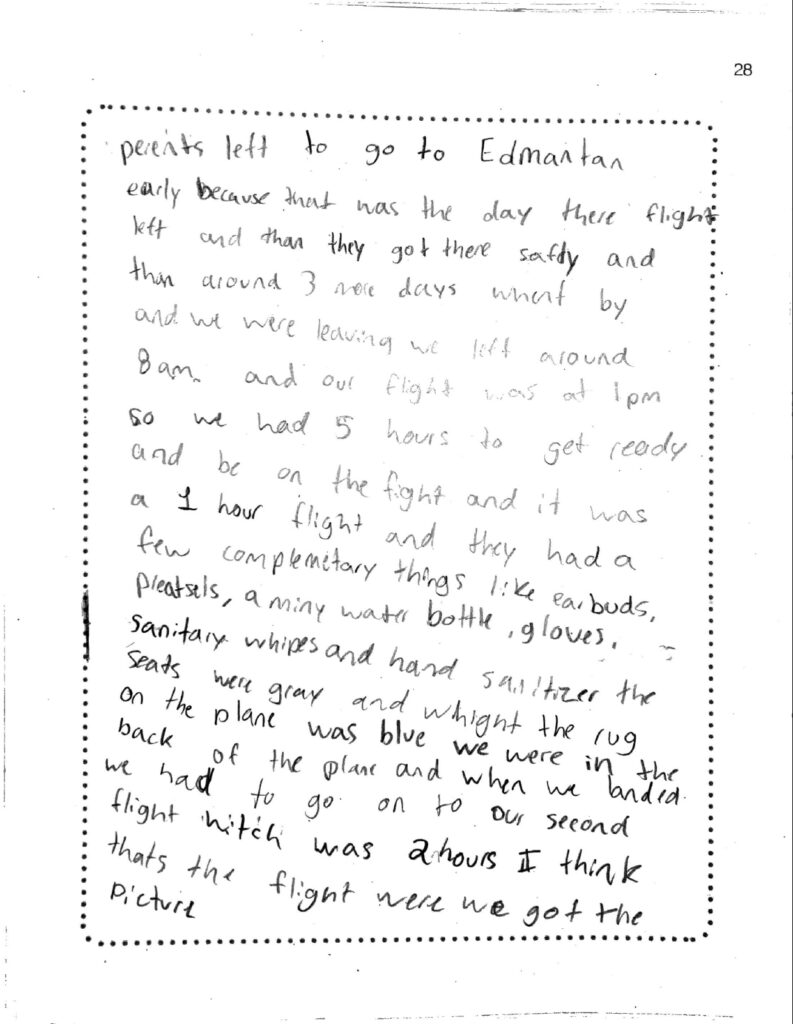 28
perents left to go to Edmantan
early because that was the day there flight
left and than they got there safty and
than around 3 more days whent by
and we were leaving we left around
8am. and our flight was at 1pm
so we had 5 hours to get ready
and be on the fight and it was
a 1 hour flight and they had a
few complemetary things like earbuds,
pleatsels, a miny water bottle, gloves,
sanitary whipes and hand sanitizer the
seats were gray and whight the rug
on the plane was blue we were in the
back of the plane and when we landed
we had to go on to our second
flight hitch was 2 hours I think
thats the flight were we got the
picture